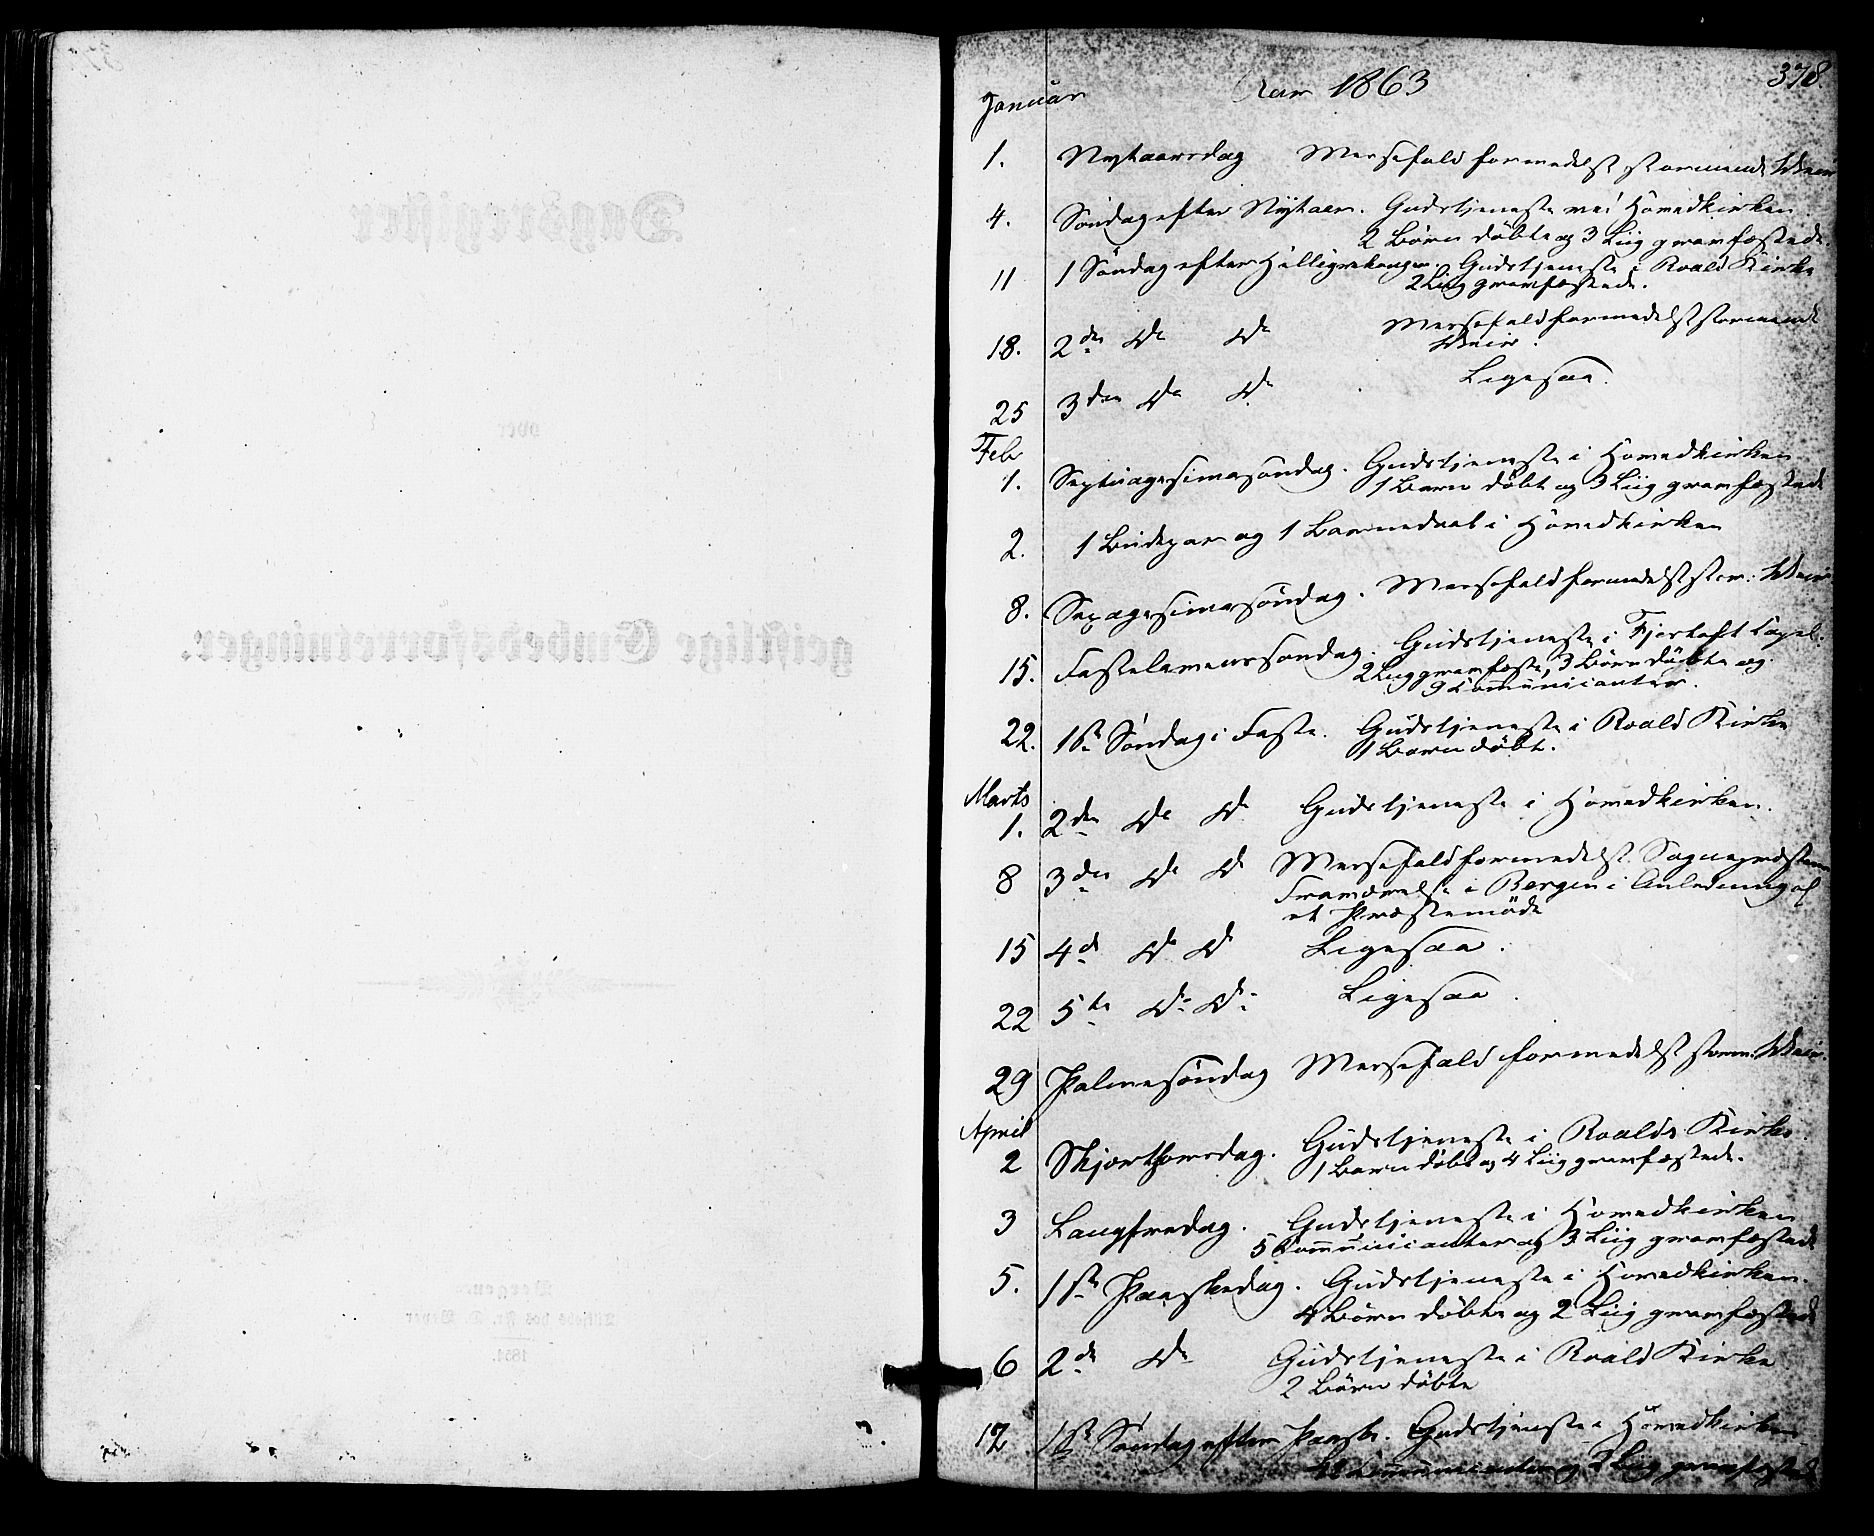 Dagsregister
over
geistlige Embedsforretninger.
Bergen.
1854.
378.
Aar 1863
Januar
1. Nytaarsdag Messefald formedelst stormende Veir
4. Søndag efter Nytaar. Gudstjeneste ved Hovedkirken.
2 Børn døbte og 3 Liig gravfæstede.
11 1 Søndag efter Helligtrekonger. Gudstjeneste i Roald Kirke
2 Liig gravfæstede.
18. 2den Do Do Messefald formedelst stormende
Veir.
25 3den Do Do Ligesaa.
Feb
1. Septuagesimasøndag. Gudstjeneste i Hovedkirken
1 Barn døbt og 3 Liig gravfæstede
2. 1 Brudepar og 1 Barnedaab i Hovedkirken
8. Sexagesimasøndag. Messefald formedelst storm: Veir
15. Fastelavenssøndag. Gudstjeneste i Fjørtoft Capel.
2 Liig gravfæste, 3 Børn døbte og
9 Communicanter.
22. 1ste Søndag i Faste. Gudstjeneste i Roald Kirke
1 Barn døbt.
Marts
1. 2den Do Do Gudstjeneste i Hovedkirken.
8 3den Do Do Messefald formedelst Sognepræstens
Fraværelse i Bergen i Anledning af
et Præstemøde
15 4de Do Do Ligesaa.
22 5te Do Do Ligesaa.
29 Palmesøndag Messefald formedelst storm: Veir.
April
2 Skjærthorsdag. Gudstjeneste i Roalds Kirke.
1 Barn døbt og 4 Liig gravfæstede.
3 Langfredag. Gudstjeneste i Hovedkirken
5 Communicanter og 3 Liig gravfæstede
5. 1ste Paaskedag. Gudstjeneste i Hovedkirken.
4 Børn døbte og 2 Liig gravfæstede
6 2de Do Gudstjeneste i Roald Kirke
2 Børn døbte
12 1ste Søndag efter Paaske. Gudstjeneste i Hovedkirken
Communicanter og 2 Liig gravfæstede